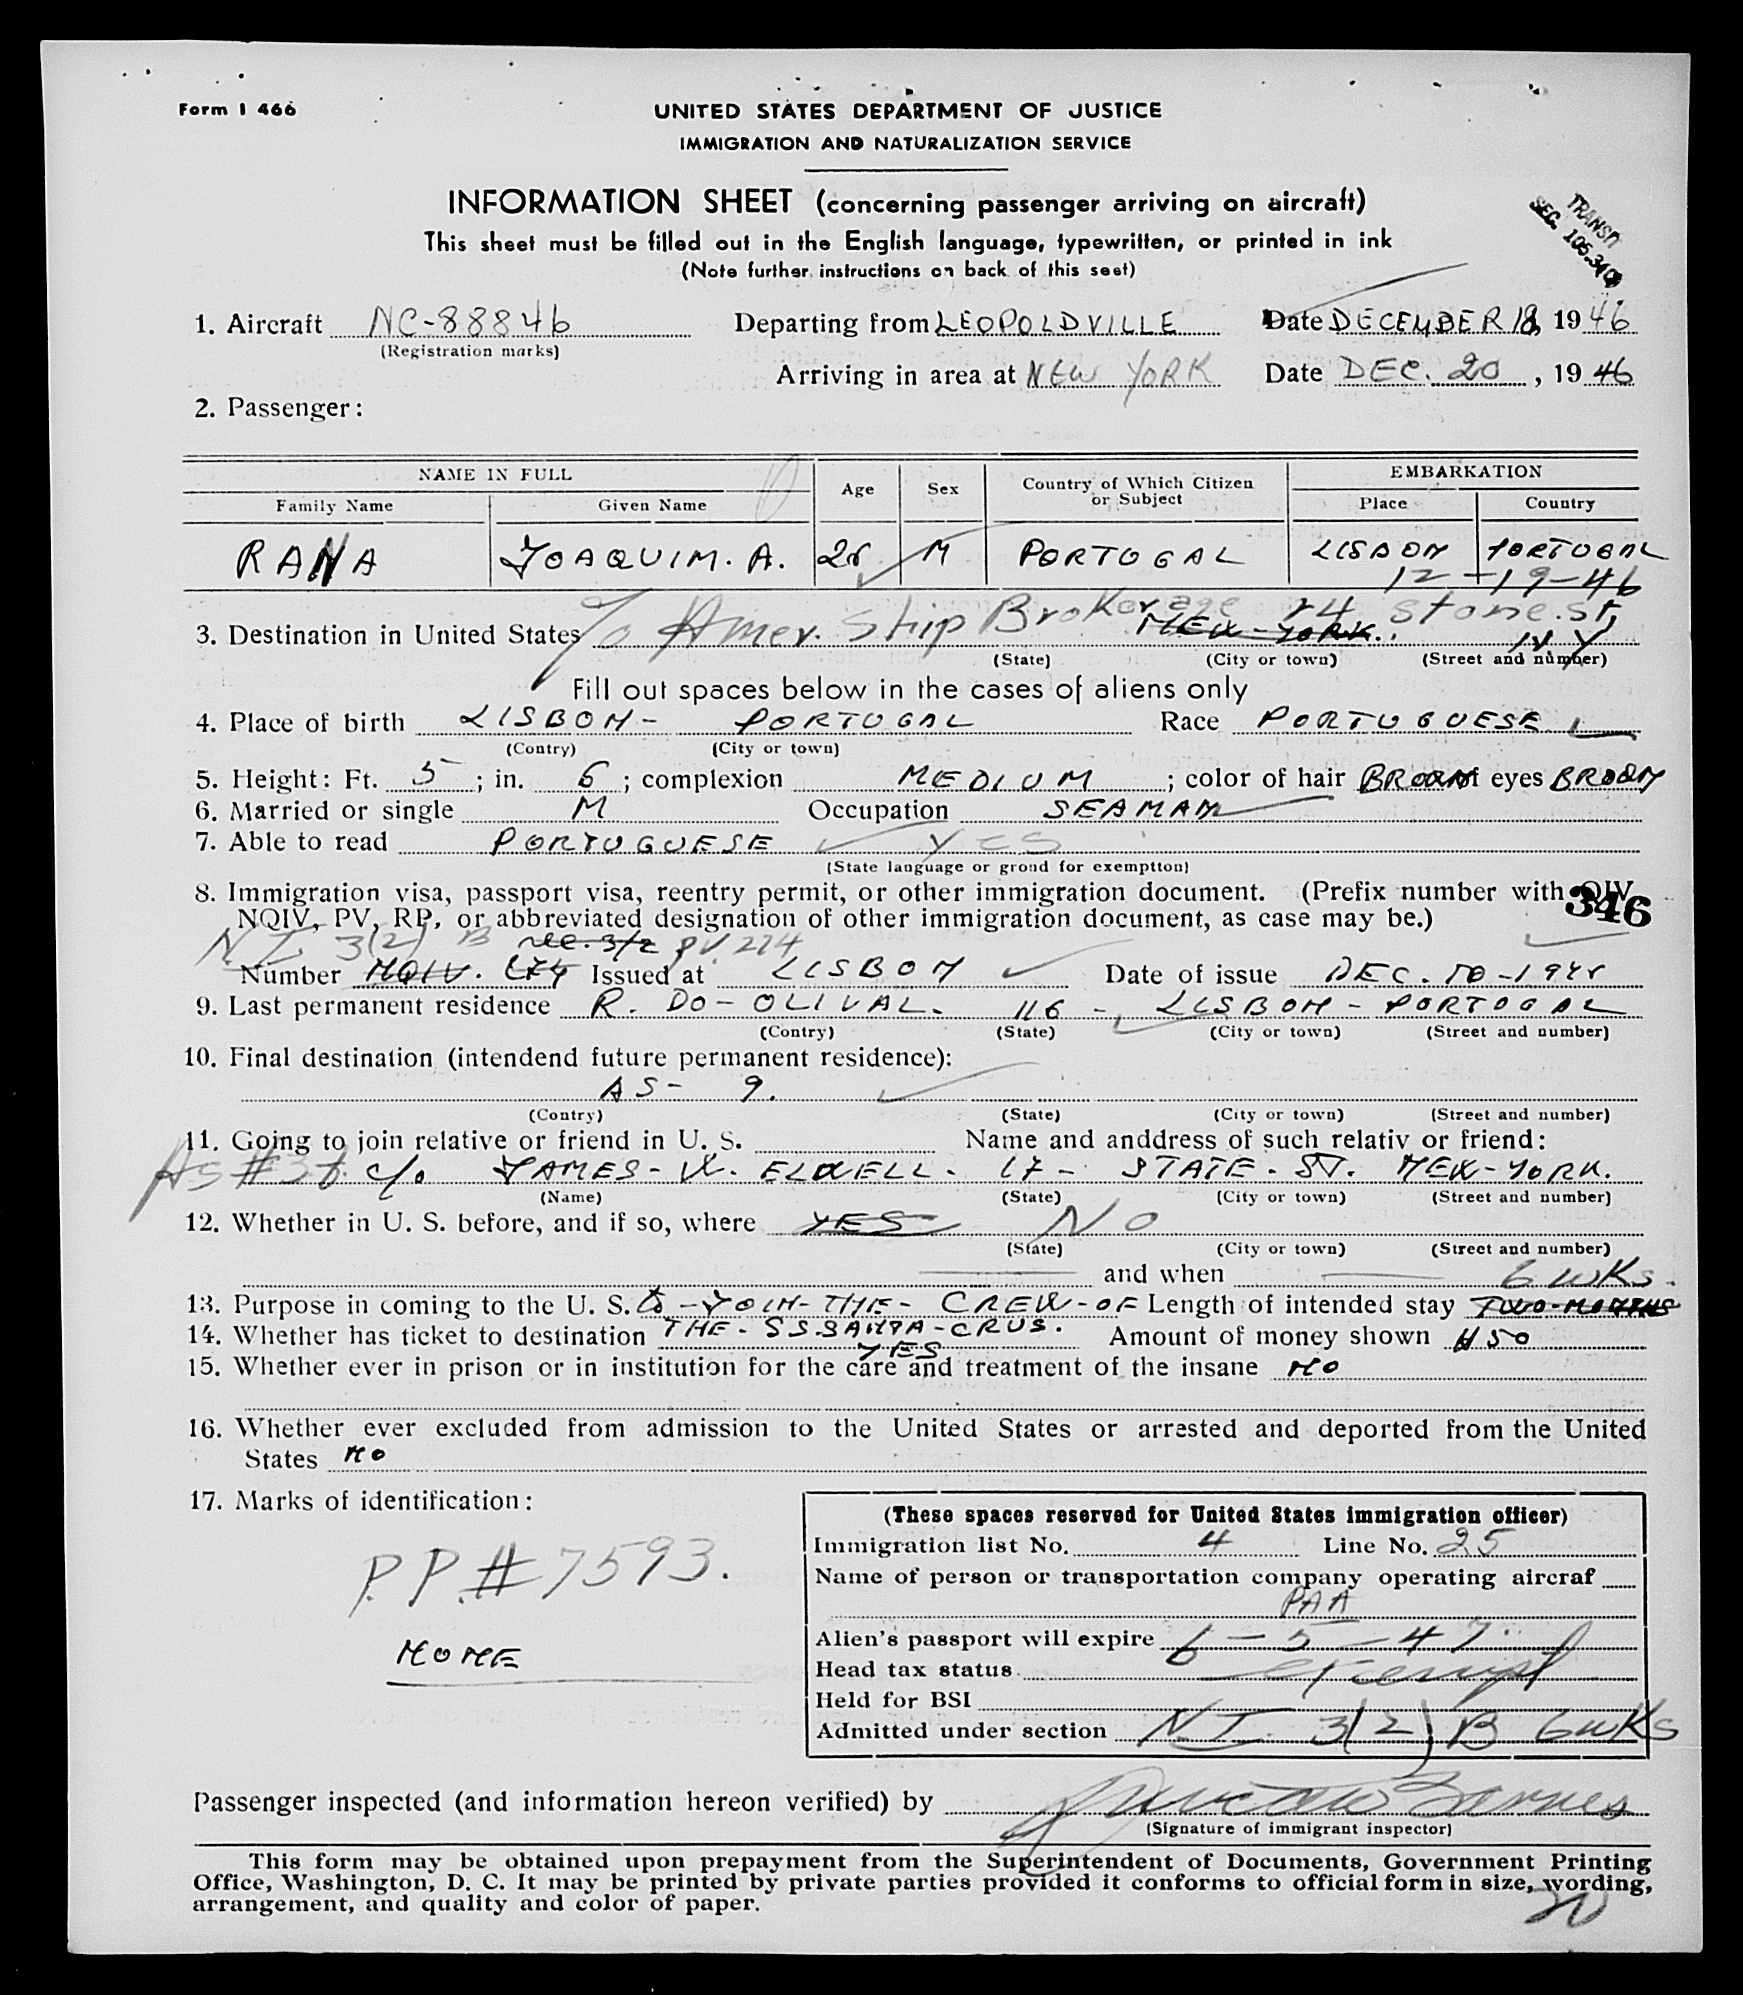 Form I 466
UNITED STATES DEPARTMENT OF JUSTICE
IMMIGRATION AND NATURALIZATION SERVICE
INFORMATION SHEET (concerning passenger arriving on aircraft)
This sheet must be filled out in the English language, typewritten, or printed in ink
(Note further instructions on back of this seet)
TRANSIT
SEC. 105.3(0
1. Aircraft NC-88846 Departing from LEOPOLDVILLE Date DECEMBER 18, 1946
(Registration marks)
Arriving in area at NEW YORK Date DEC. 20, 1946
2. Passenger:
NAME IN FULL Age Sex Country of Which Citizen or Subject EMBARKATION
Family Name Given Name Place Country
RANA JOAQUIM. A. 26 M PORTUGAL LISBON PORTUGAL
12-19-46
3. Destination in United States c/o Amer. Ship Brokerage 24 Stone. St,
NEW-YORK. N Y
(State) (City or town) (Street and number)
Fill out spaces below in the cases of aliens only
4. Place of birth LISBON - PORTUGAL Race PORTUGUESE
(Contry) (City or town)
5. Height: Ft. 5; in. 6; complexion MEDIUM; color of hair BROWN eyes BROWN
6. Married or single M Occupation SEAMAN
7. Able to read PORTUGUESE YES
(State language or grond for exemption)
8. Immigration visa, passport visa, reentry permit, or other immigration document. (Prefix number with QIV,
NQIV, PV, RP, or abbreviated designation of other immigration document, as case may be.) 346
N.I. 3(2) B Sec. 3/2 PV. 274
Number NQIV. 274 Issued at LISBON Date of issue DEC. 10-1946
9. Last permanent residence R. DO-OLIVAL. 116 - LISBON - PORTUGAL
(Contry) (State) (City or town) (Street and number)
10. Final destination (intendend future permanent residence):
AS- 9.
(Contry) (State) (City or town) (Street and number)
11. Going to join relative or friend in U. S. Name and anddress of such relativ or friend:
As #3 c/o JAMES-W. ELWELL. 17 - STATE. ST. NEW-YORK.
(Name) (State) (City or town) (Street and number)
12. Whether in U. S. before, and if so, where YES NO
(State) (City or town) (Street and number)
and when 6 wks.
13. Purpose in coming to the U. S. TO-JOIN-THE-CREW-OF Length of intended stay TWO-MONTHS
14. Whether has ticket to destination THE-SS.SANTA-CRUS. Amount of money shown $50
YES
15. Whether ever in prison or in institution for the care and treatment of the insane NO
16. Whether ever excluded from admission to the United States or arrested and deported from the United
States NO
17. Marks of identification:
P.P.#7593.
NONE
(These spaces reserved for United States immigration officer)
Immigration list No. 4 Line No. 25
Name of person or transportation company operating aircraf
PAA
Alien's passport will expire 6-5-47
Head tax status exempt
Held for BSI
Admitted under section N.I. 3(2) B 6 wks
Passenger inspected (and information hereon verified) by
(Signature of immigrant inspector)
This form may be obtained upon prepayment from the Superintendent of Documents, Government Printing
Office, Washington, D. C. It may be printed by private parties provided it conforms to official form in size, wording,
arrangement, and quality and color of paper.